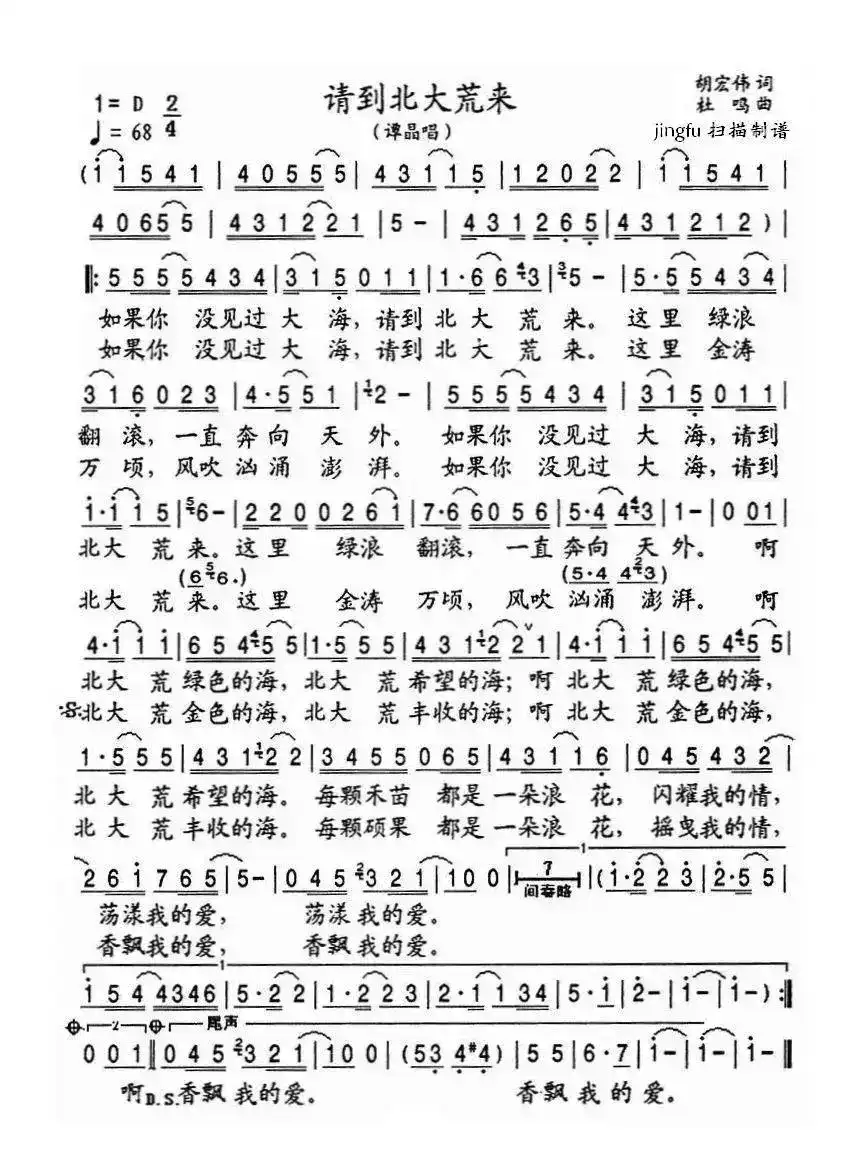 请到北大荒来
1= D 2/4
♩= 68
(谭晶唱)
胡宏伟 词
杜 鸣 曲
jingfu 扫描制谱
(1 1 5 4 1 | 4 0 5 5 5 5 | 4 3 1 1 5 | 1 2 0 2 2 | 1 1 5 4 1 |
4 0 6 5 5 | 4 3 1 2 2 1 | 5 - | 4 3 1 2 6 5 | 4 3 1 2 1 2 ) |
‖: 5 5 5 5 4 3 4 | 3 1 5 0 1 1 | 1· 6 6 4 3 | 3 5 - | 5· 5 5 4 3 4 |
如果你 没见过 大 海，请到 北 大 荒 来。 这 里 绿浪
如果你 没见过 大 海，请到 北 大 荒 来。 这 里 金涛
3 1 6 0 2 3 | 4· 5 5 1 | 1 2 - | 5 5 5 5 4 3 4 | 3 1 5 0 1 1 |
翻 滚，一直 奔向 天 外。 如果你 没见过 大 海，请到
万 顷，风吹 汹涌 澎 湃。 如果你 没见过 大 海，请到
1· 1 1 5 | 5 6 - | 2 2 0 0 2 6 1 | 7· 6 6 0 5 6 | 5· 4 4 4 3 | 1 - | 0 0 1 |
北大 荒 来。这 里 绿浪 翻滚， 一直奔向 天外。 啊
(6 5 6·) (5·4 4 2 3)
北大 荒 来。这 里 金涛 万顷， 风吹 汹涌 澎湃。 啊
4· 1 1 1 | 6 5 4 4 5 5 | 1· 5 5 5 | 4 3 1 1 2 2 ∨ 1 | 4· 1 1 1 | 6 5 4 4 5 5 |
北大 荒 绿色的海，北大 荒 希望的海；啊 北大 荒 绿色的海，
:S: 北大 荒 金色的海，北大 荒 丰收的海；啊 北大 荒 金色的海，
1· 5 5 5 | 4 3 1 1 2 2 | 3 4 5 5 0 6 5 | 4 3 1 1 6 | 0 4 5 4 3 2 |
北 大 荒 希望的海。每颗禾苗 都是 一朵浪 花， 闪耀我的情，
北 大 荒 丰收的海。每颗硕果 都是 一朵浪 花， 摇曳我的情，
2 6 1 7 6 5 | 5 - | 0 4 5 2 3 2 1 | 1 0 0 | 7 | (1· 2 2 3 | 2· 5 5 |
间奏略
1
荡漾我的爱， 荡漾我的爱。
香飘我的爱， 香飘我的爱。
1
1 5 4 4 3 4 6 | 5· 2 2 | 1· 2 2 3 | 2· 1 1 3 4 | 5· 1 | 2 - | 1 - | 1 - ) :‖
2 尾声
0 0 1 ‖ 0 4 5 2 3 2 1 | 1 0 0 | (5 3 4 #4) | 5 5 | 6· 7 | 1 - | 1 - ‖
啊 D.S. 香飘 我的爱。 香飘 我 的 爱。